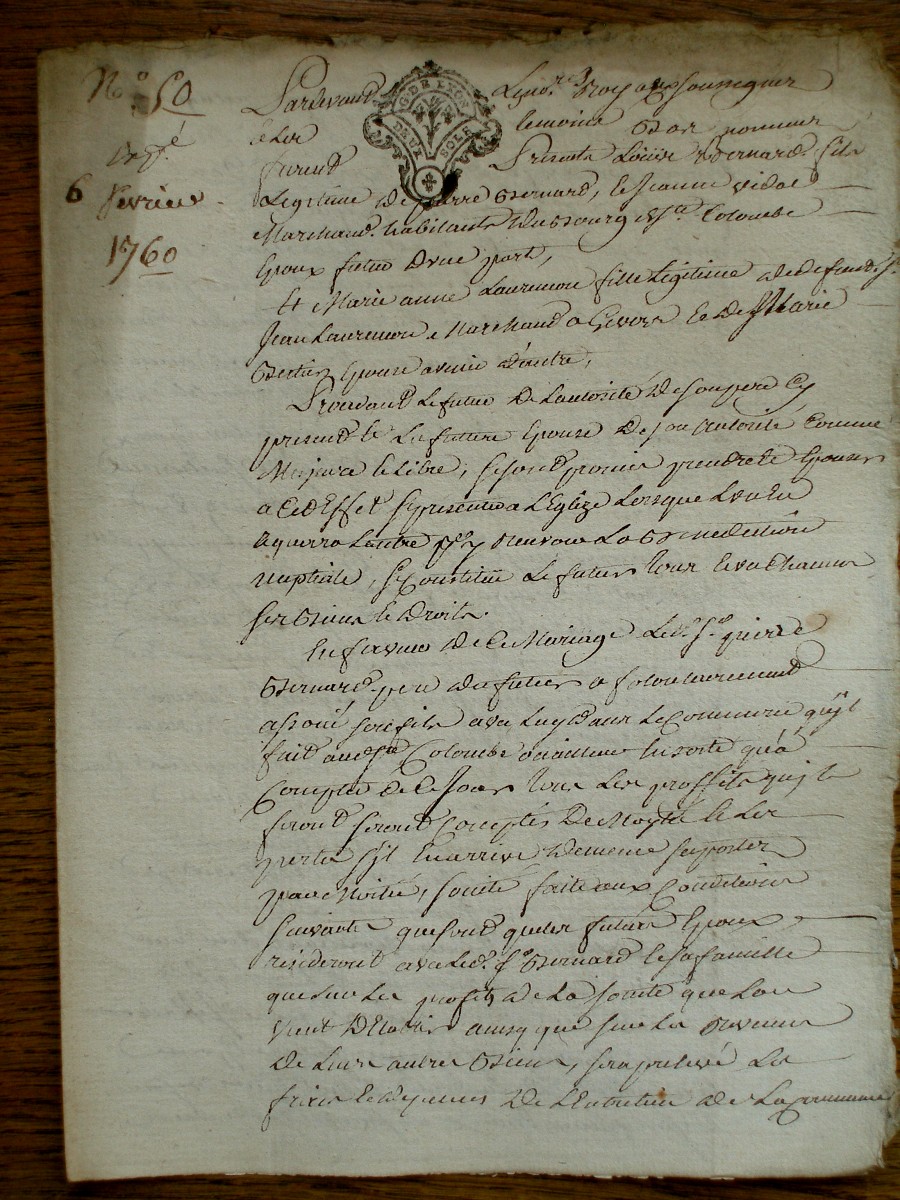 N° 50
exp.é
6 fevrier
1760
G. DE LYON
DEUX SOLS
Pardevant Le no.re Roy aux soussigner
et les temoins Bas nommes
furent Presents Louis Bernard fils
Legitime de pierre Bernard, et Jeanne vidal
Marchand habitants du Bourg de S.te Colombe
Epoux futur d'une part,
Et Marie anne Laurenson fille Legitime de defunt S.r
Jean Laurenson Marchand a Givors et de Marie
Bertin Epouse avenir d'autre,
Procedant Le futur de L'autorité de son pere Cy
present et La future Epouse de son autorité Comme
Majeure et Libre, se sont promis prendre et Epouser
a Cet Effet se presenter a L'Eglize Lorsque L'un En
requerra L'autre pour y recevoir La Benediction
nuptiale, se Constitue Le futur tous et un Chacun
ses Biens et Droits.
En faveur de Ce Mariage Led. S.r pierre
Bernard pere du futur a volontairement
associé son fils avec Luy dans Le Commerce qu'jl
fait aud. S.te Colombe ou ailleurs En sorte qu'à
Compter de Ce Jour tous Les proffits qu'jls
feront seront Comptés De Moytié et Les
pertes s'jl En arrive de meme supporter
par Moitié, societé faite aux Conditions
suivantes que sont que les futurs Epoux
resideront avec Led. S.r Bernard et sa famille
que sur Les profits de La societé que L'on
vient D'Etablir ainsy que sur Les Revenus
de Leurs autres Biens, sera prelevé Les
frais et depences De L'Entretien de La Commune